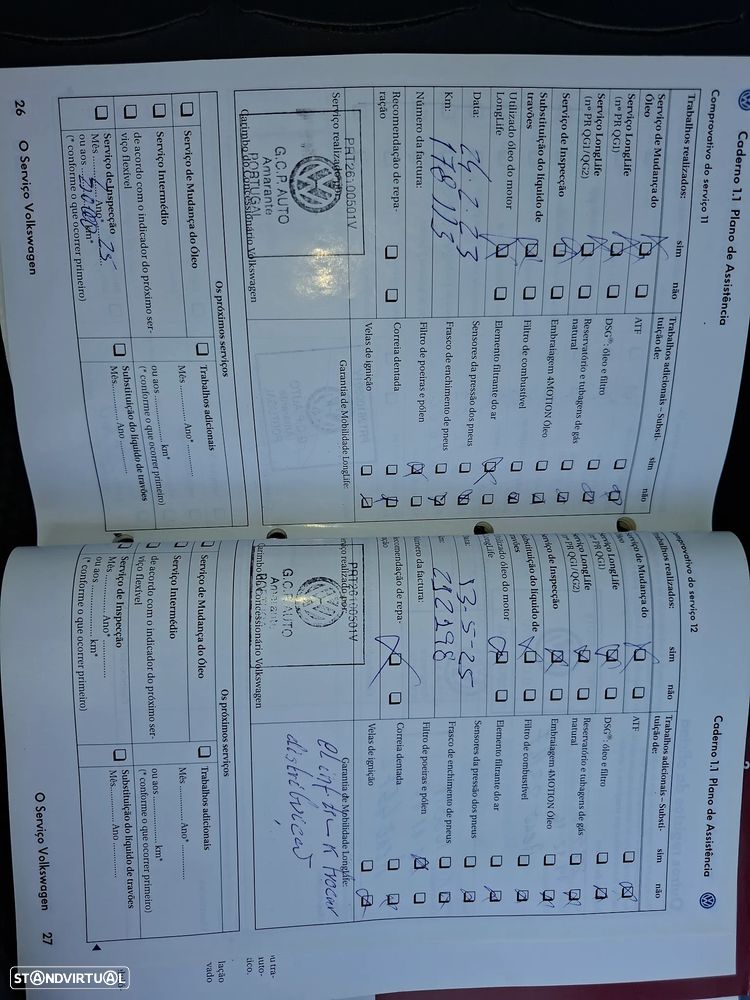 Caderno 1.1 Plano de Assistência
Comprovativo do serviço 11
Trabalhos realizados:
sim
não
Serviço de Mudança do
Óleo
Serviço LongLife
(nº PR QG1)
Serviço LongLife
(nº PR QG1/QG2)
Serviço de Inspecção
Substituição do líquido de
travões
Utilizado óleo do motor
LongLife
Data:
24.2.23
Km:
178113
Número da factura:
Recomendação de repa-
ração
Serviço realizado por:
PRT26100501V
G.C.P. AUTO
Amarante
PORTUGAL
Carimbo do Concessionário Volkswagen
Trabalhos adicionais – Substi-
tuição de:
sim
não
ATF
DSG®: óleo e filtro
Reservatório e tubagens de gás
natural
Embraiagem 4MOTION Óleo
Filtro de combustível
Elemento filtrante do ar
Sensores da pressão dos pneus
Frasco de enchimento de pneus
Filtro de poeiras e pólen
Correia dentada
Velas de ignição
Garantia de Mobilidade LongLife:
Os próximos serviços
Serviço de Mudança do Óleo
Serviço Intermédio
de acordo com o indicador do próximo ser-
viço flexível
Serviço de Inspecção
Mês ............ Ano* 25
ou aos ............ km*
(* conforme o que ocorrer primeiro)
Trabalhos adicionais
Mês ............ Ano* ............
ou aos ............ km*
(* conforme o que ocorrer primeiro)
Substituição do líquido de travões
Mês ............ Ano ............
26 O Serviço Volkswagen
Caderno 1.1 Plano de Assistência
mprovativo do serviço 12
abalhos realizados:
sim
não
erviço de Mudança do
leo
erviço LongLife
º PR QG1)
erviço LongLife
º PR QG1/QG2)
erviço de Inspecção
ubstituição do líquido de
avões
tilizado óleo do motor
ongLife
13-5-25
212198
úmero da factura:
ecomendação de repa-
ção
viço realizado por:
PRT26100501V
G.C.P. AUTO
Amarante
arimbo do Concessionário Volkswagen
Trabalhos adicionais – Substi-
tuição de:
sim
não
ATF
DSG®: óleo e filtro
Reservatório e tubagens de gás
natural
Embraiagem 4MOTION Óleo
Filtro de combustível
Elemento filtrante do ar
Sensores da pressão dos pneus
Frasco de enchimento de pneus
Filtro de poeiras e pólen
Correia dentada
Velas de ignição
Garantia de Mobilidade LongLife:
trocar
Os próximos serviços
Serviço de Mudança do Óleo
Serviço Intermédio
de acordo com o indicador do próximo ser-
viço flexível
Serviço de Inspecção
Mês ............ Ano* ............
ou aos ............ km*
(* conforme o que ocorrer primeiro)
Trabalhos adicionais
Mês ............ Ano* ............
ou aos ............ km*
(* conforme o que ocorrer primeiro)
Substituição do líquido de travões
Mês ............ Ano ............
O Serviço Volkswagen 27
lação
vado
STANDVIRTUAL